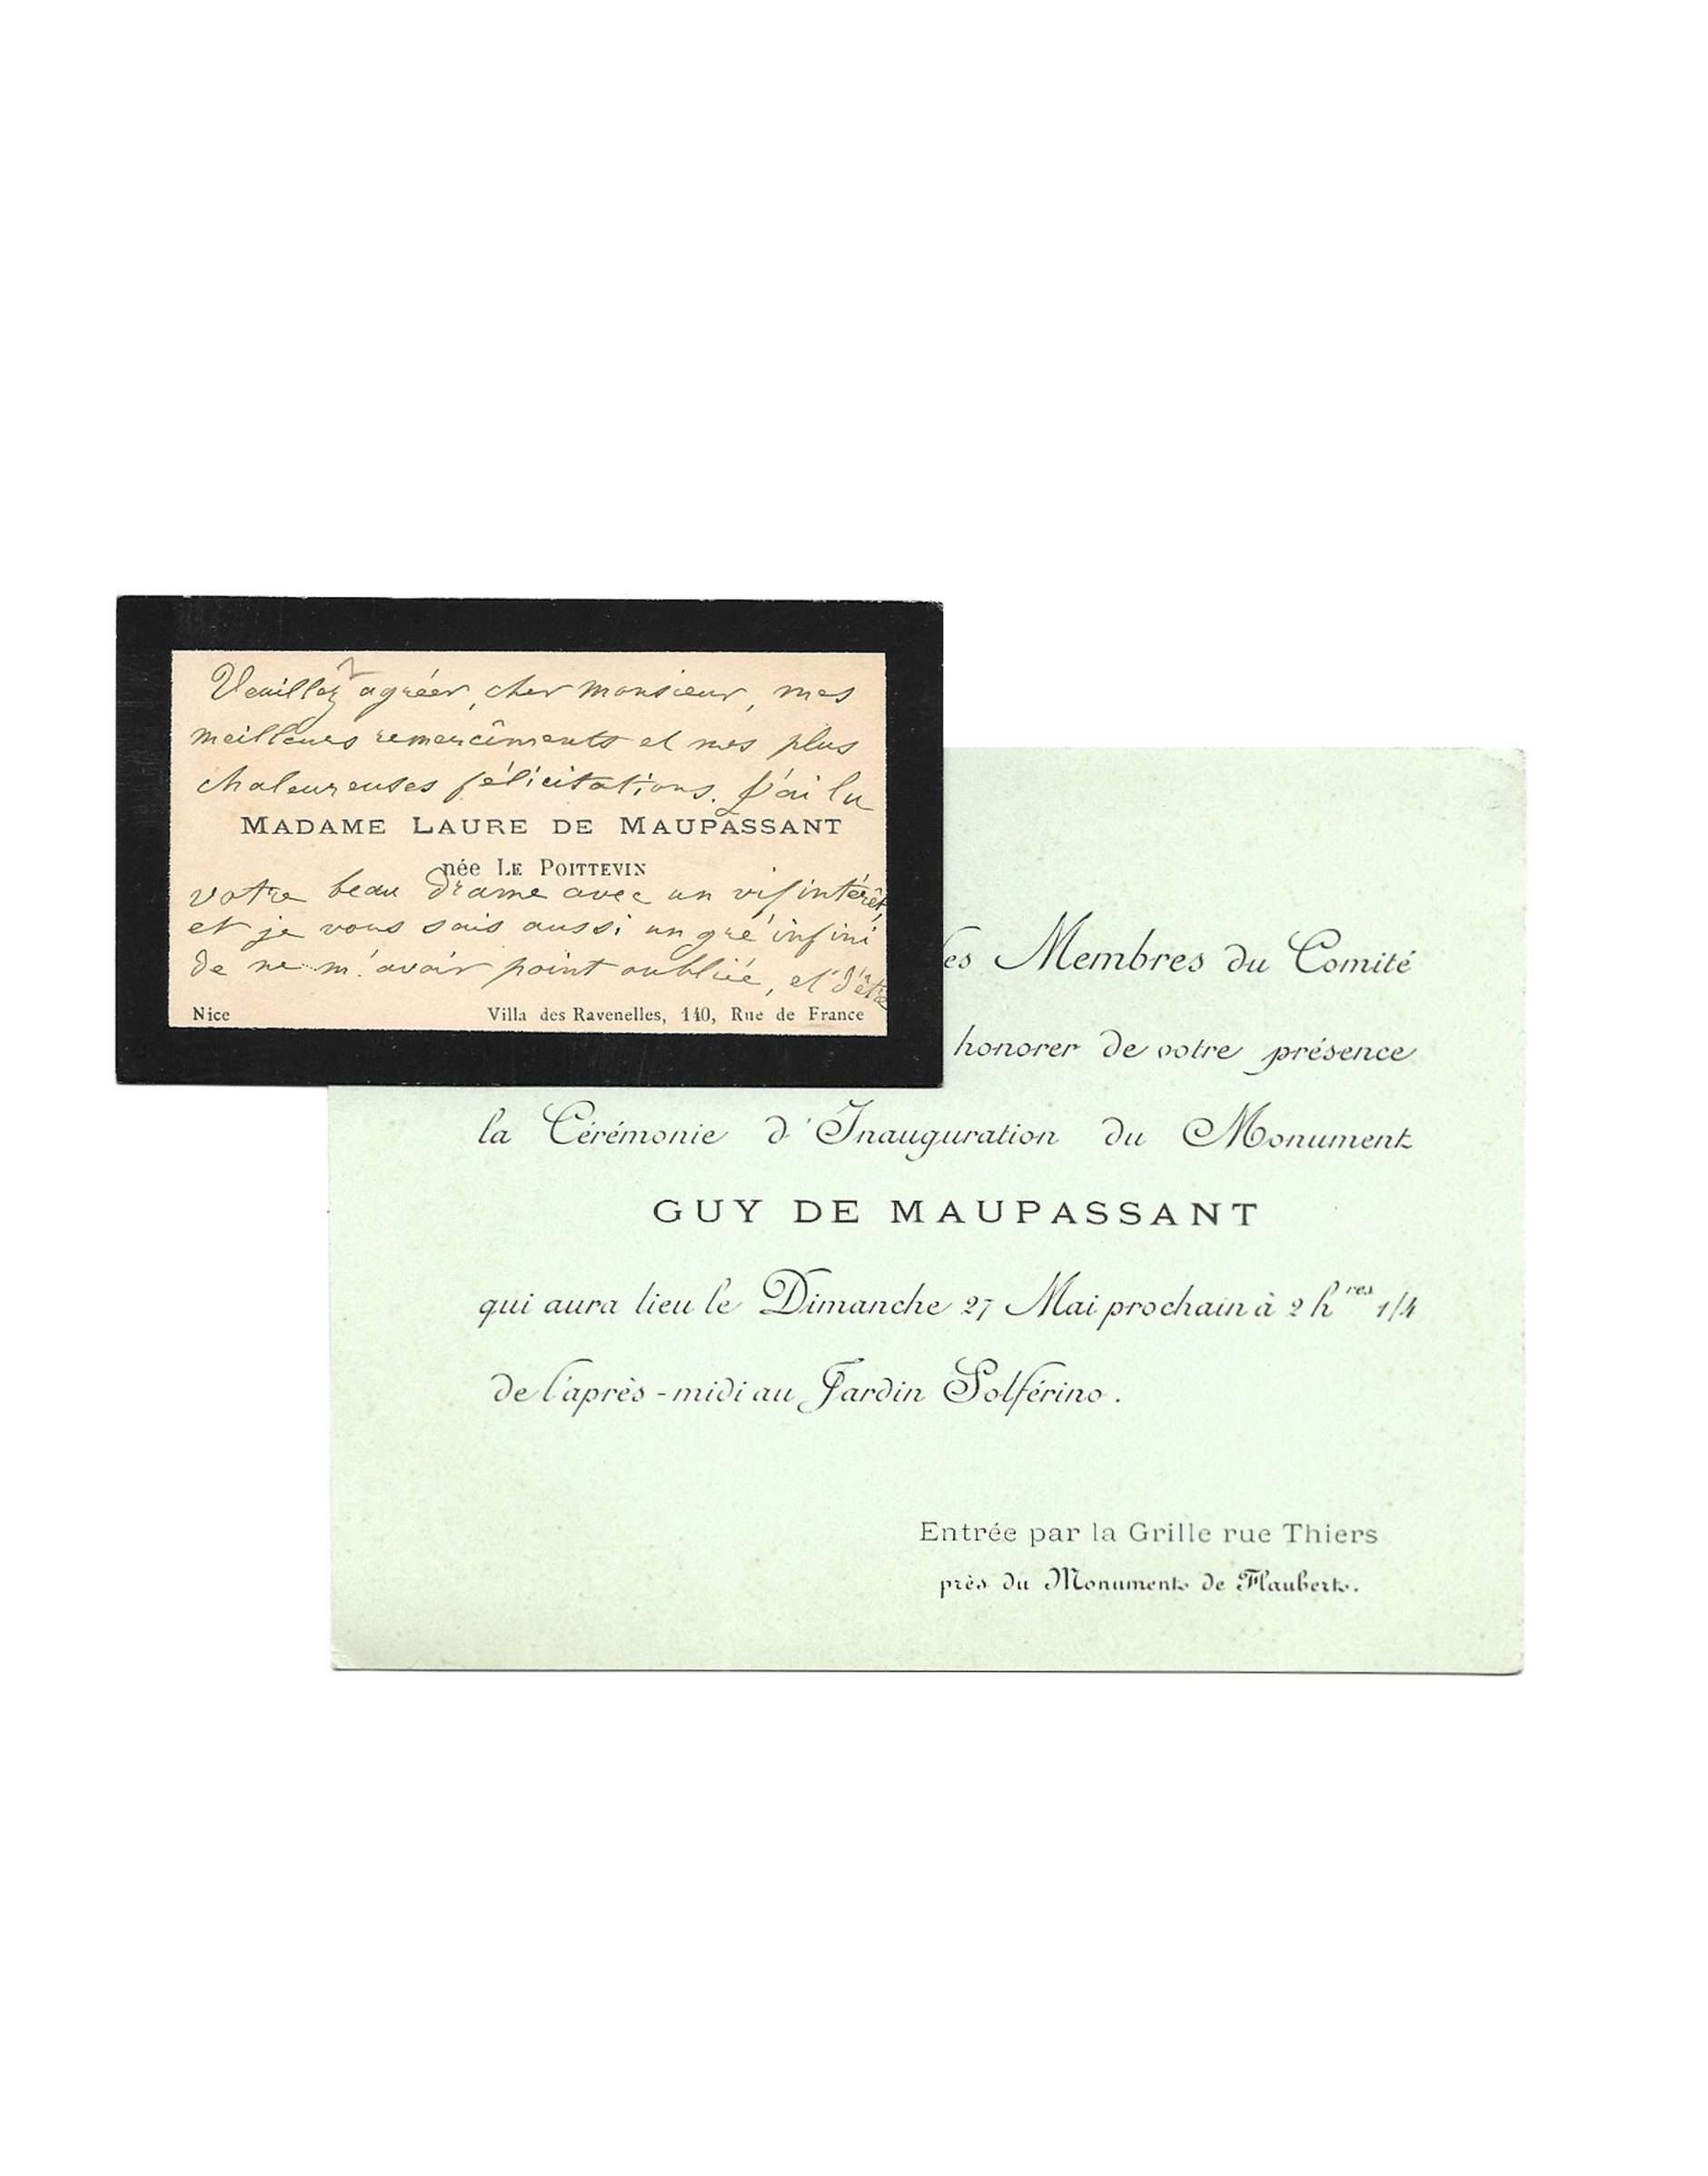 Veuillez agréer, cher monsieur, mes
meilleurs remercîments et mes plus
chaleureuses félicitations. J'ai lu
MADAME LAURE DE MAUPASSANT
née LE POITTEVIN
votre beau drame avec un vif intérêt,
et je vous sais aussi un gré infini
de ne m'avoir point oubliée, et d'être
Nice Villa des Ravenelles, 140, Rue de France
es Membres du Comité
honorer de votre présence
la Cérémonie d'Inauguration du Monument
GUY DE MAUPASSANT
qui aura lieu le Dimanche 27 Mai prochain à 2 hres 1/4
de l'après-midi au Jardin Solférino.
Entrée par la Grille rue Thiers
près du Monument de Flaubert.